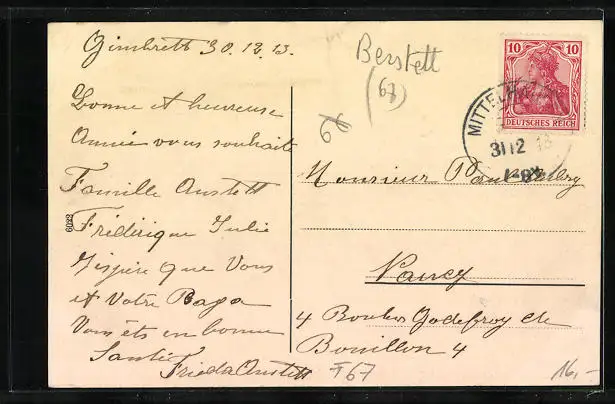 Gimbrett 30.12.13.
Bonne et heureuse
Année vous souhaite
Famille Anstett
Fréderique Julie
J'espire que Vous
et Votre Papa
Vous êts en bonne
Santé
Frieda Anstett
6023
Berstett
(67)
6
10 10
DEUTSCHES REICH
MITTEL
31 12 13
Monsieur Paul
Nancy
4 Boulev Godefroy de
Bouillon 4
F67
16,-